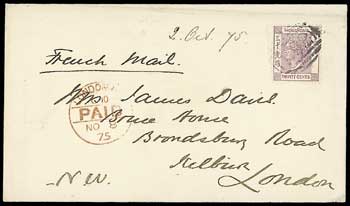 2. Oct. 75.
French Mail.
HONG KONG
THIRTY CENTS
LONDON
PAID
NO 8
75
Mrs James David
House
Brondsbury Road
Kilburn
London
N.W.